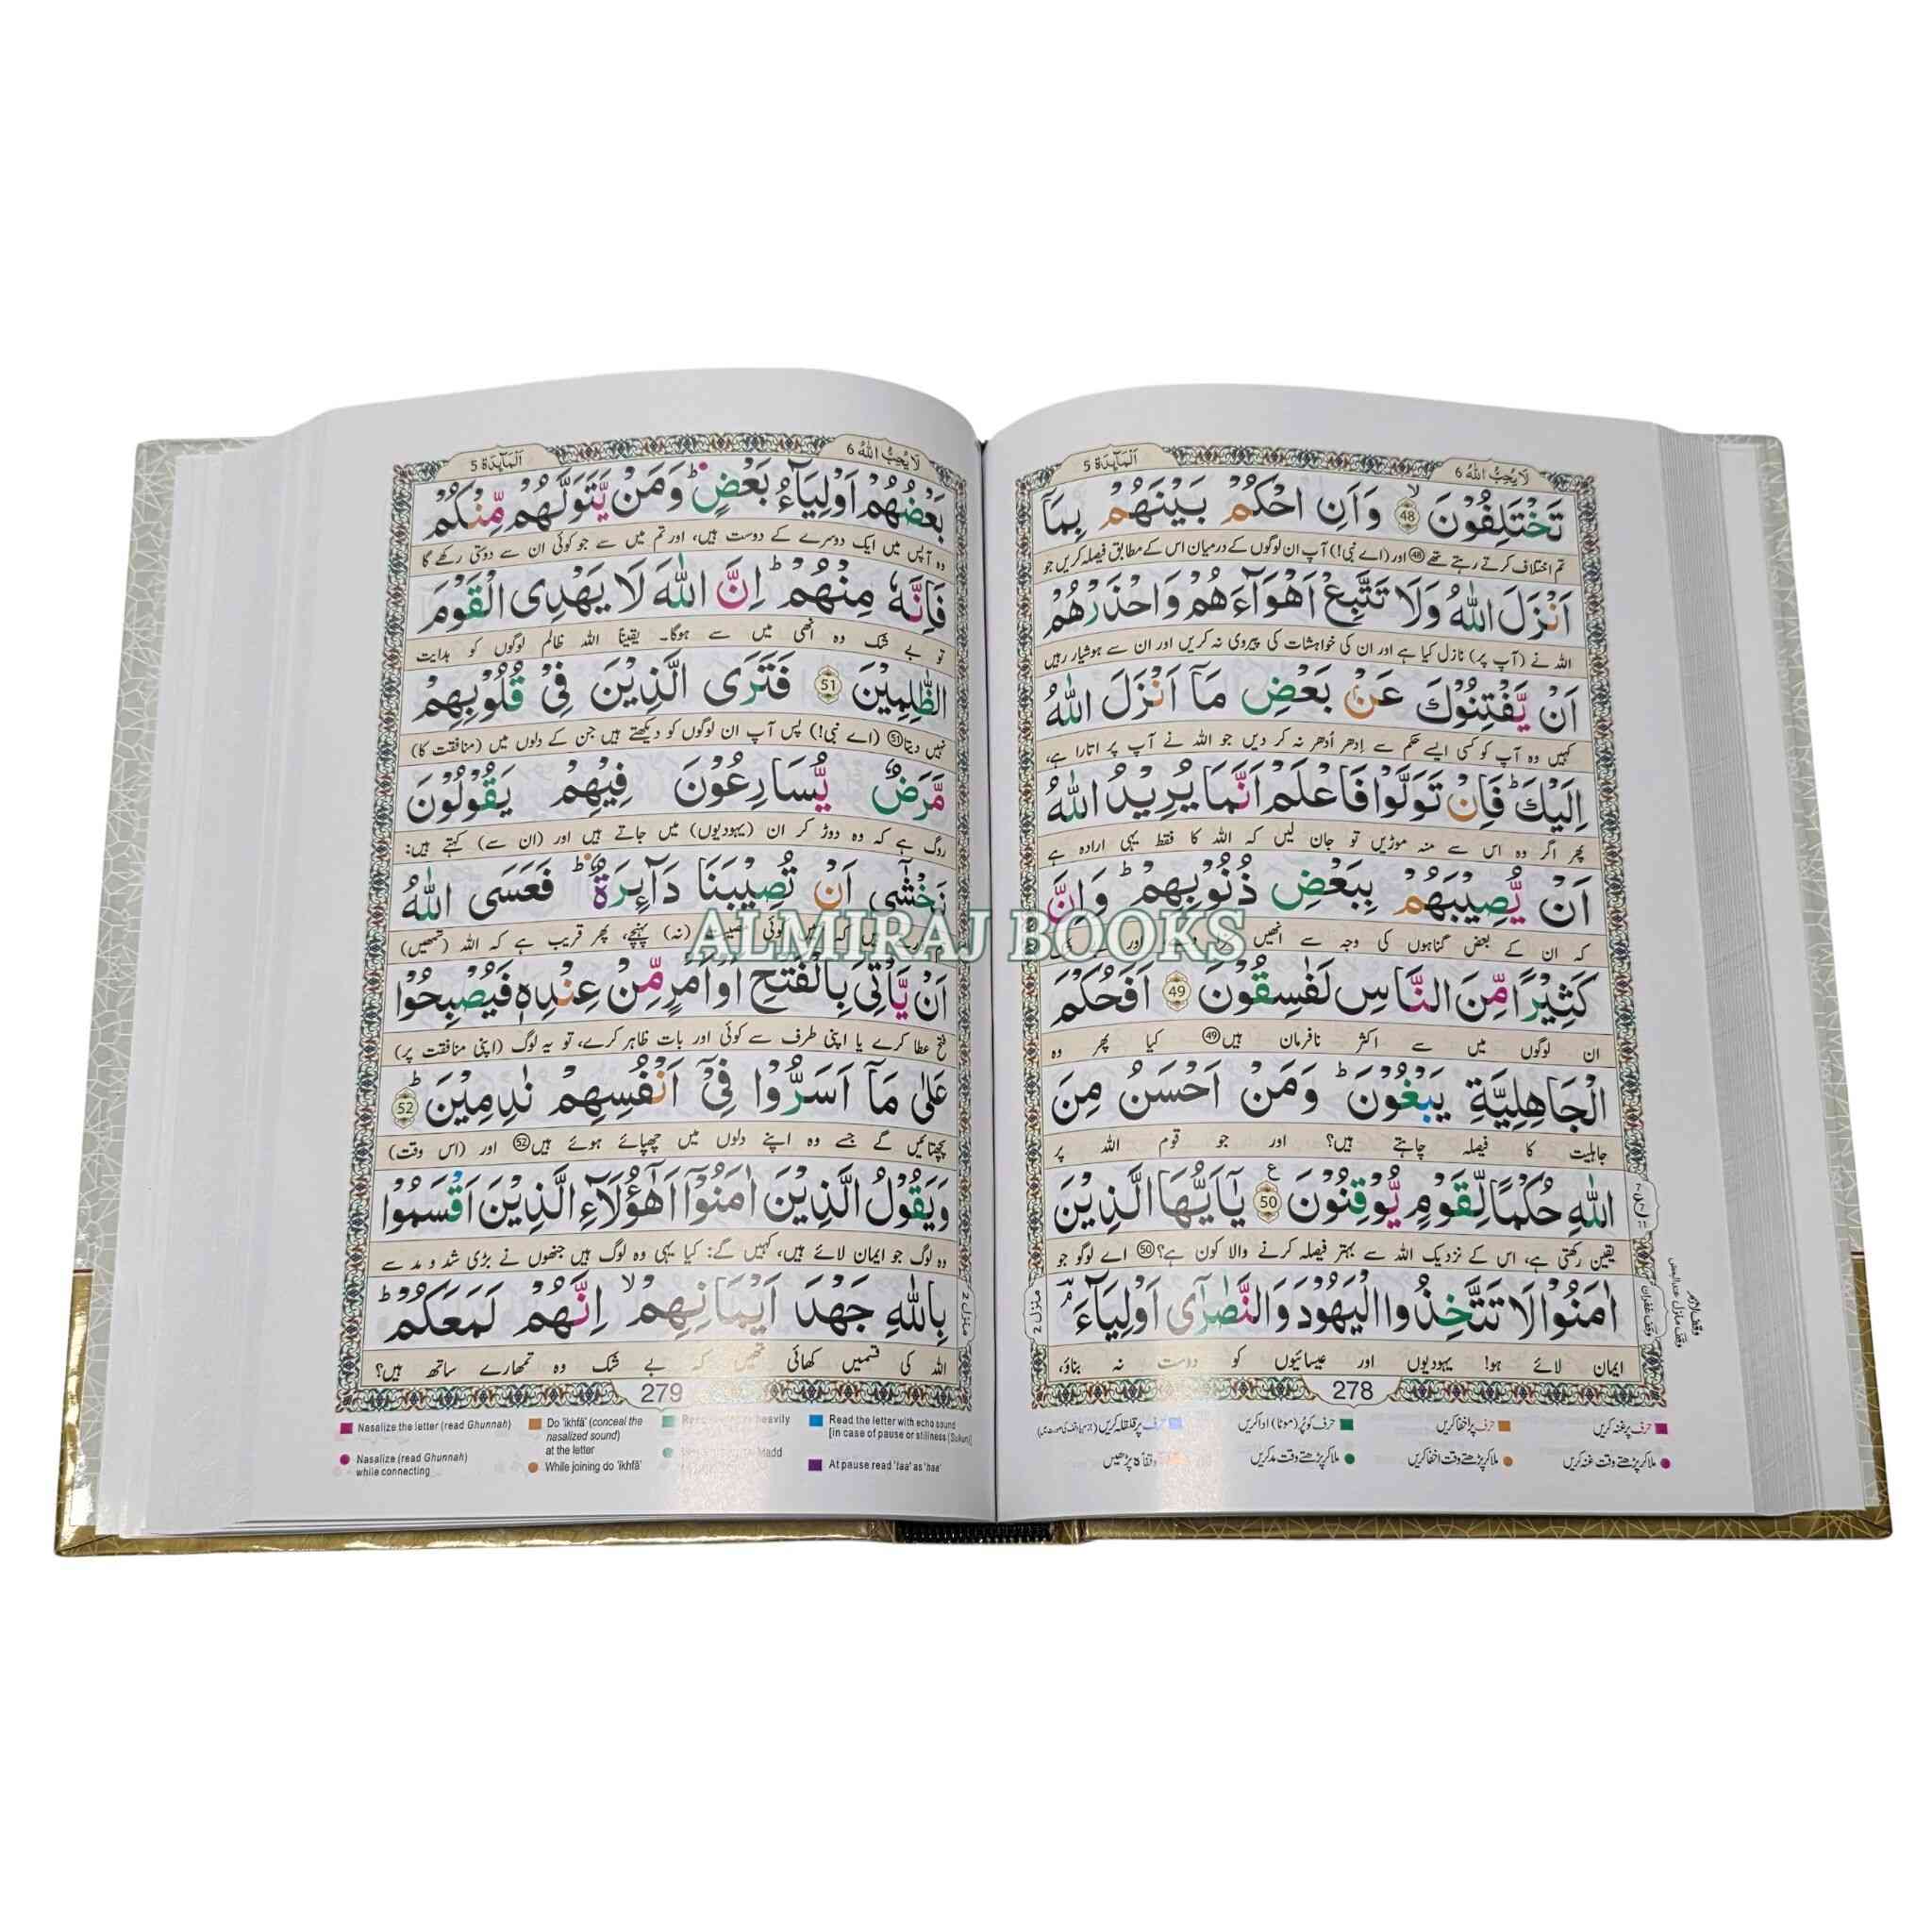 لَا يُحِبُّ اللّٰهُ 6
اَلْمَآئِدَة 5
تَخْتَلِفُوْنَ 48 وَاَنِ احْكُمْ بَيْنَهُمْ بِمَآ
تم اختلاف کرتے رہتے تھے 48 اور (اے نبی!) آپ ان لوگوں کے درمیان اس کے مطابق فیصلہ کریں جو
اَنْزَلَ اللّٰهُ وَلَا تَتَّبِعْ اَهْوَآءَهُمْ وَاحْذَرْهُمْ
اللہ نے (آپ پر) نازل کیا ہے اور ان کی خواہشات کی پیروی نہ کریں اور ان سے ہوشیار رہیں
اَنْ يَّفْتِنُوْكَ عَنْۢ بَعْضِ مَآ اَنْزَلَ اللّٰهُ
کہیں وہ آپ کو کسی ایسے حکم سے اِدھر اُدھر نہ کر دیں جو اللہ نے آپ پر اتارا ہے،
اِلَيْكَ ؕ فَاِنْ تَوَلَّوْا فَاعْلَمْ اَنَّمَا يُرِيْدُ اللّٰهُ
پھر اگر وہ اس سے منہ موڑیں تو جان لیں کہ اللہ کا فقط یہی ارادہ ہے
اَنْ يُّصِيْبَهُمْ بِبَعْضِ ذُنُوْبِهِمْ ؕ وَاِنَّ
کہ ان کے بعض گناہوں کی وجہ سے انھیں
كَثِيْرًا مِّنَ النَّاسِ لَفٰسِقُوْنَ 49 اَفَحُكْمَ
ان لوگوں میں سے اکثر نافرمان ہیں 49 کیا پھر وہ
الْجَاهِلِيَّةِ يَبْغُوْنَ ؕ وَمَنْ اَحْسَنُ مِنَ
جاہلیت کا فیصلہ چاہتے ہیں؟ اور جو قوم اللہ پر
اللّٰهِ حُكْمًا لِّقَوْمٍ يُّوْقِنُوْنَ 50 يٰٓاَيُّهَا الَّذِيْنَ
یقین رکھتی ہے، اس کے نزدیک اللہ سے بہتر فیصلہ کرنے والا کون ہے؟ 50 اے لوگو جو
اٰمَنُوْا لَا تَتَّخِذُوا الْيَهُوْدَ وَالنَّصٰرٰٓى اَوْلِيَآءَ ۘ
ایمان لائے ہو! یہودیوں اور عیسائیوں کو دوست نہ بناؤ،
منزل 2
وقف لازم
278
حرف پر غنہ کریں
حرف پر اخفا کریں
حرف کو پُر (موٹا) ادا کریں
حرف پر قلقلہ کریں
ملا کر پڑھتے وقت غنہ کریں
ملا کر پڑھتے وقت اخفا کریں
ملا کر پڑھتے وقت مد کریں
لَا يُحِبُّ اللّٰهُ 6
اَلْمَآئِدَة 5
بَعْضُهُمْ اَوْلِيَآءُ بَعْضٍ ؕ وَمَنْ يَّتَوَلَّهُمْ مِّنْكُمْ
وہ آپس میں ایک دوسرے کے دوست ہیں، اور تم میں سے جو کوئی ان سے دوستی رکھے گا
فَاِنَّهٗ مِنْهُمْ ؕ اِنَّ اللّٰهَ لَا يَهْدِى الْقَوْمَ
تو بے شک وہ انھی میں سے ہوگا۔ یقیناً اللہ ظالم لوگوں کو ہدایت
الظّٰلِمِيْنَ 51 فَتَرَى الَّذِيْنَ فِىْ قُلُوْبِهِمْ
نہیں دیتا 51 (اے نبی!) پس آپ ان لوگوں کو دیکھتے ہیں جن کے دلوں میں (منافقت کا)
مَّرَضٌ يُّسَارِعُوْنَ فِيْهِمْ يَقُوْلُوْنَ
روگ ہے کہ وہ دوڑ کر ان (یہودیوں) میں جاتے ہیں اور (ان سے) کہتے ہیں:
نَخْشٰٓى اَنْ تُصِيْبَنَا دَآئِرَةٌ ؕ فَعَسَى اللّٰهُ
کوئی (نہ) پہنچے، پھر قریب ہے کہ اللہ (تمھیں)
اَنْ يَّاْتِىَ بِالْفَتْحِ اَوْ اَمْرٍ مِّنْ عِنْدِهٖ فَيُصْبِحُوْا
فتح عطا کرے یا اپنی طرف سے کوئی اور بات ظاہر کرے، تو یہ لوگ (اپنی منافقت پر)
عَلٰى مَآ اَسَرُّوْا فِىْٓ اَنْفُسِهِمْ نٰدِمِيْنَ ؕ 52
پچھتائیں گے جسے وہ اپنے دلوں میں چھپائے ہوئے ہیں 52 اور (اس وقت)
وَيَقُوْلُ الَّذِيْنَ اٰمَنُوْٓا اَهٰٓؤُلَآءِ الَّذِيْنَ اَقْسَمُوْا
وہ لوگ جو ایمان لائے ہیں، کہیں گے: کیا یہی وہ لوگ ہیں جنھوں نے بڑی شد و مد سے
بِاللّٰهِ جَهْدَ اَيْمَانِهِمْ ۙ اِنَّهُمْ لَمَعَكُمْ ؕ
اللہ کی قسمیں کھائی تھیں کہ بے شک وہ تمھارے ساتھ ہیں؟
منزل 2
279
Nasalize the letter (read Ghunnah)
Do 'ikhfā' (conceal the
nasalized sound)
at the letter
heavily
Read the letter with echo sound
[in case of pause or stillness (Sukun)]
Nasalize (read Ghunnah)
while connecting
While joining do 'ikhfā'
Madd
At pause read 'taa' as 'haa'
ALMIRAJ BOOKS